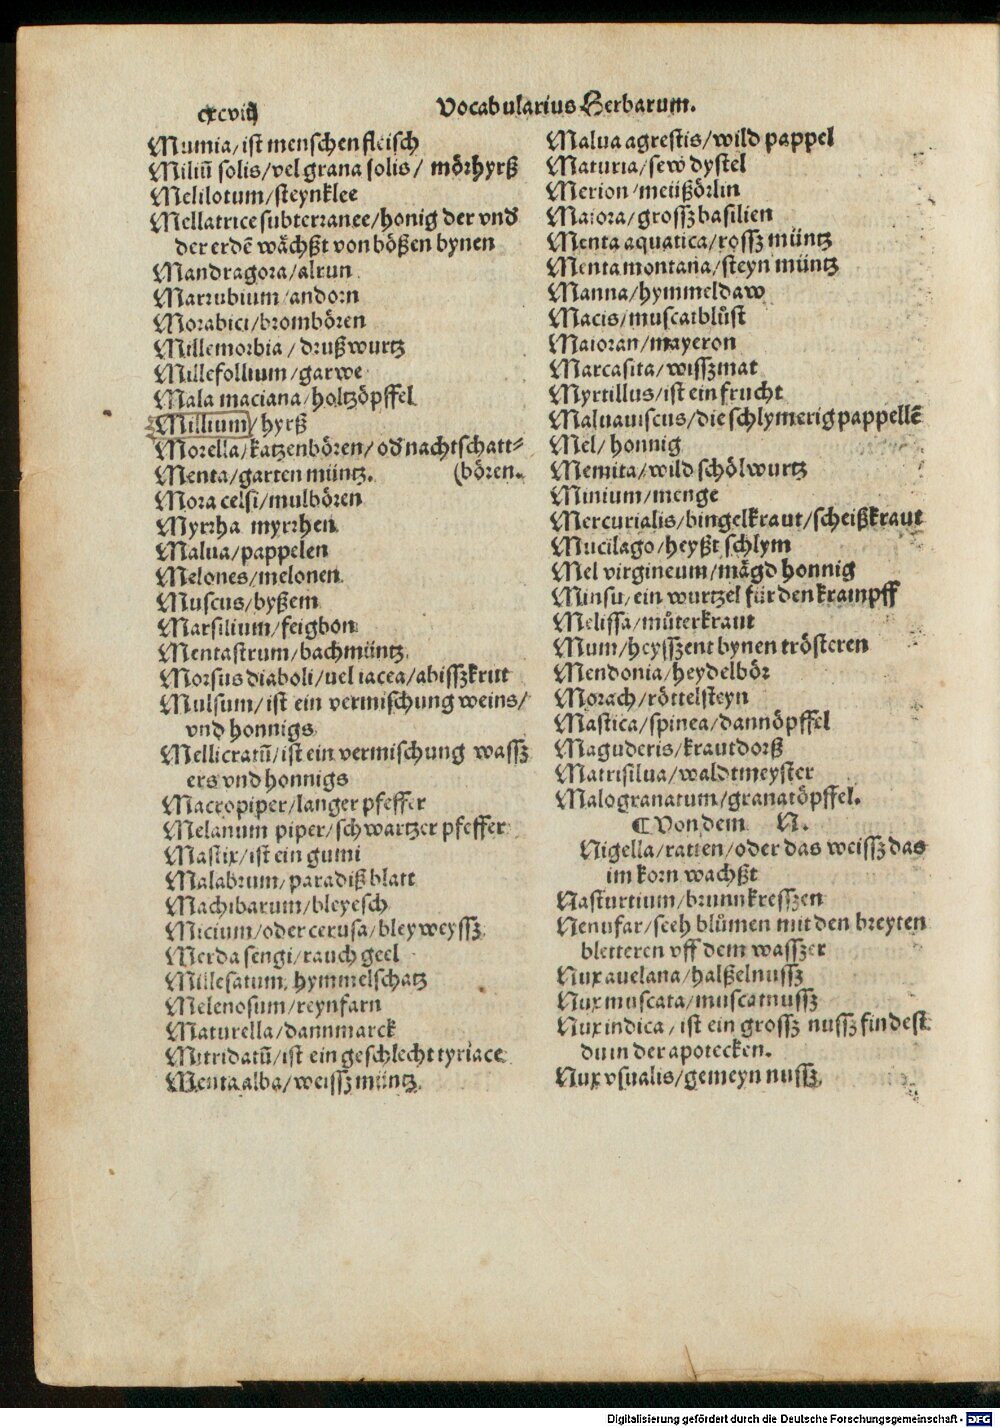 cxcviij
Vocabularius Herbarum.
Mumia/ist menschen fleisch
Miliū solis/vel grana solis/ mörhyrß
Melilotum/steynklee
Mellatrice subterranee/honig der vnd
der erdē wächßt von bößen bynen
Mandragora/alrun
Marrubium/andorn
Morabici/brombören
Millemorbia/drußwurtz
Millefollium/garwe
Mala maciana/holtzöpffel
Millium/hyrß
Morella/katzenbören/od nachtschatt⸗
Menta/garten müntz. (bören.
Mora celsi/mulbören
Myrrha myrrhen
Malua/pappelen
Melones/melonen
Muscus/byßem
Marsilium/feigbon
Mentastrum/bachmüntz
Morsus diaboli/uel iacea/abisszkrut
Mulsum/ist ein vermischung weins/
vnd honnigs
Mellicratū/ist ein vermischung wassz
ers vnd honnigs
Macropiper/langer pfeffer
Melanum piper/schwartzer pfeffer
Mastix/ist ein gumi
Malabrum/paradißblatt
Machibarum/bleyesch
Micium/oder cerusa/bleyweyssz
Merda sengi/rauch geel
Millesatum, hymmelschatz
Melenosum/reynfarn
Maturella/dannmarck
Mitridatū/ist ein geschlecht tyriace
Menta alba/weissz müntz
Malua agrestis/wild pappel
Maturia/sew dystel
Merion/meüßörlin
Maiora/grossz basilien
Menta aquatica/rossz müntz
Menta montana/steyn müntz
Manna/hymmeldaw
Macis/muscatblůst
Maioran/mayeron
Marcasita/wisszmat
Myrtillus/ist ein frucht
Maluauiscus/die schlymerig pappellē
Mel/honnig
Memita/wild schölwurtz
Minium/menge
Mercurialis/bingelkraut/scheißkraut
Mucilago/heyßt schlym
Mel virgineum/mägd honnig
Minsu/ein wurtzel für den krampff
Melissa/můterkraut
Mum/heysszent bynen trösteren
Mendonia/heydelbör
Morach/röttelsteyn
Mastica/spinea/dannöpffel
Maguderis/krautdorß
Matrisilua/waldtmeyster
Malogranatum/granatöpffel.
¶ Von dem N.
Nigella/ratten/oder das weissz das
im korn wachßt
Nasturtium/brunnkresszen
Nenufar/seeh blůmen mit den breyten
bletteren vff dem wasszer
Nux auelana/halßelnussz
Nux muscata/muscatnussz
Nux indica/ist ein grossz nussz findest
du in der apotecken.
Nux vsualis/gemeyn nussz
Digitalisierung gefördert durch die Deutsche Forschungsgemeinschaft - DFG